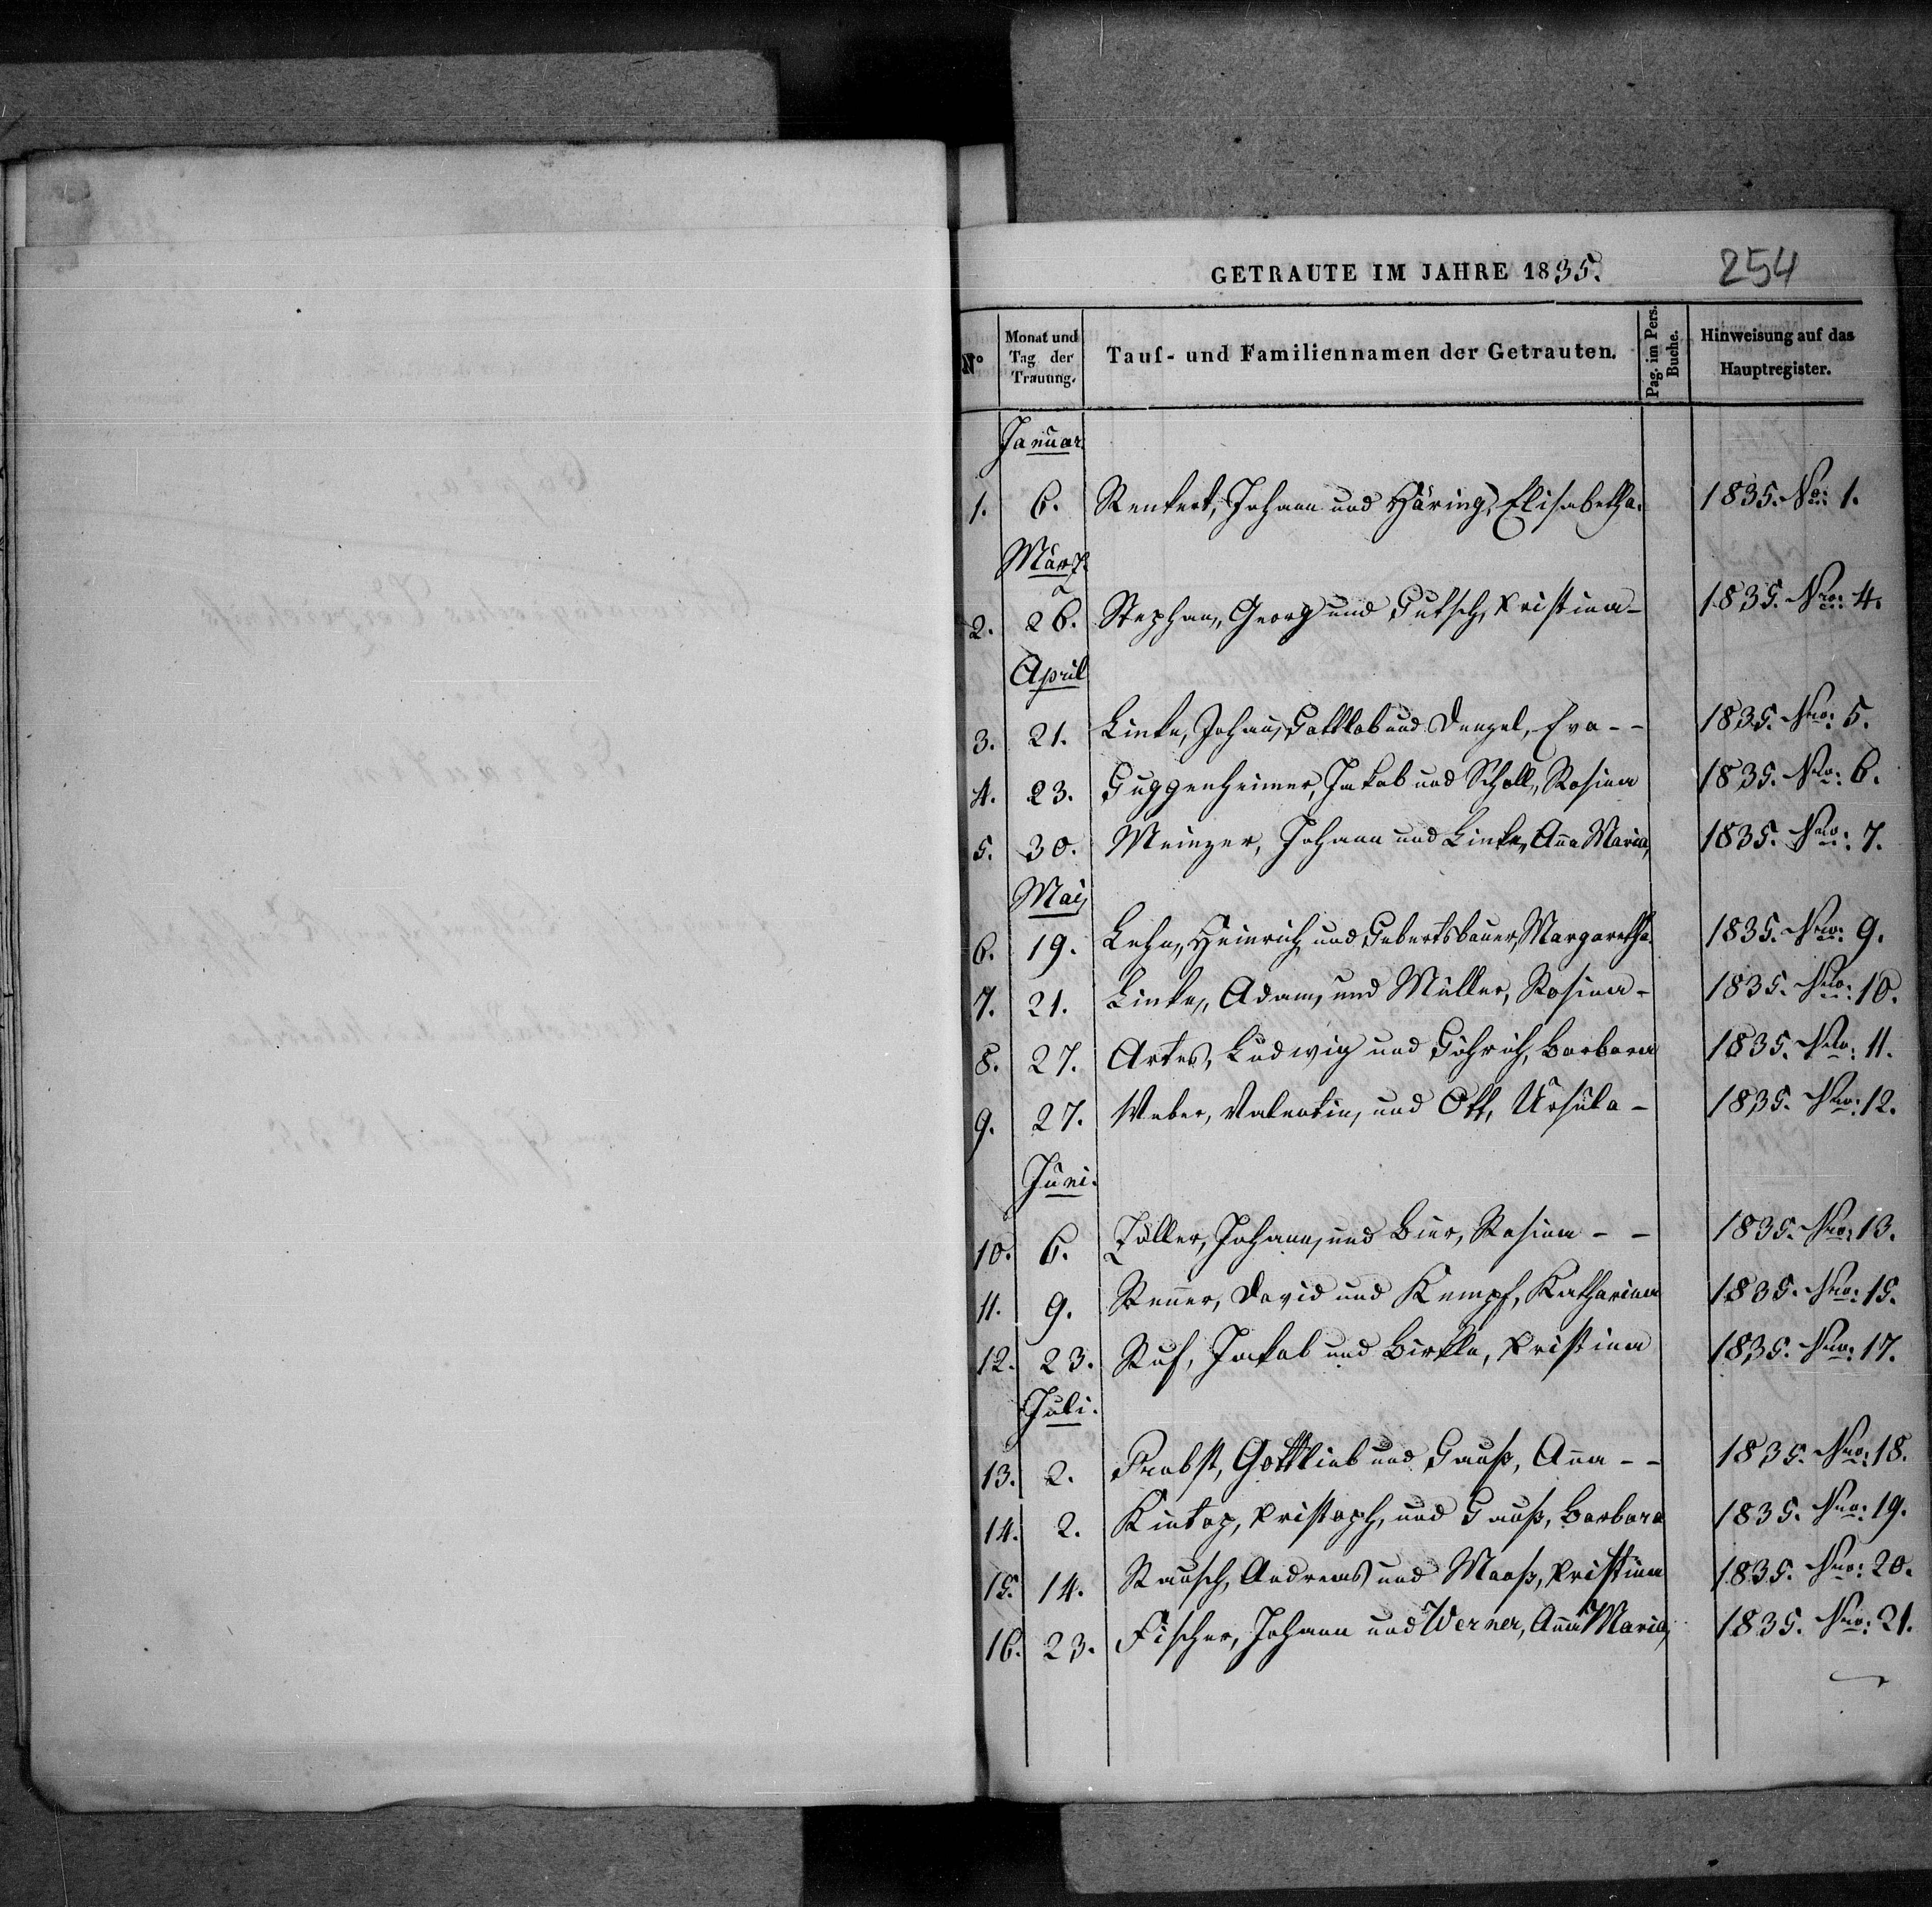 GETRAUTE IM JAHRE 1835. 254
No Monat und Tag der Trauung. Tauf- und Familiennamen der Getrauten. Pag. im Pers. Buche. Hinweisung auf das Hauptregister.
Januar
1. 6. Renkert, Johann und Häring, Elisabetha. 1835. No: 1.
März
2. 26. Stephan, Georg und Gutsch, Kristina- 1835. Nro: 4.
April
3. 21. Linke, Johann, Gottlob und Denzel, Eva - - 1835. Nro: 5.
4. 23. Guggenheimer, Jakob und Scholl, Rosina 1835. Nro: 6.
5. 30. Meinzer, Johann und Linke, Anna Maria, 1835. Nro: 7.
Mai,
6. 19. Lehn, Heinrich und Gebertsbauer, Margaretha. 1835. Nro: 9.
7. 21. Linke, Adam, und Müller, Rosina - 1835. Nro: 10.
8. 27. Artes, Ludwig und Göhrich, Barbara 1835. Nro: 11.
9. 27. Weber, Valentin, und Ott, Ursula - 1835. Nro: 12.
Juni.
10. 6. Zöller, Johann, und Bier, Rosina - - 1835. Nro: 13.
11. 9. Renner, David und Kempf, Katharina 1835. Nro: 15.
12. 23. Ruf, Jakob und Birkle, Kristina 1835. Nro: 17.
Juli.
13. 2. Probst, Gottlieb und Gauß, Anna - - 1835. Nro: 18.
14. 2. Kintop, Kristoph, und Gauß, Barbara 1835. Nro: 19.
15. 14. Rausch, Andreas und Maaß, Kristina 1835. Nro: 20.
16. 23. Fischer, Johann und Werner, Anna Maria, 1835. Nro: 21.